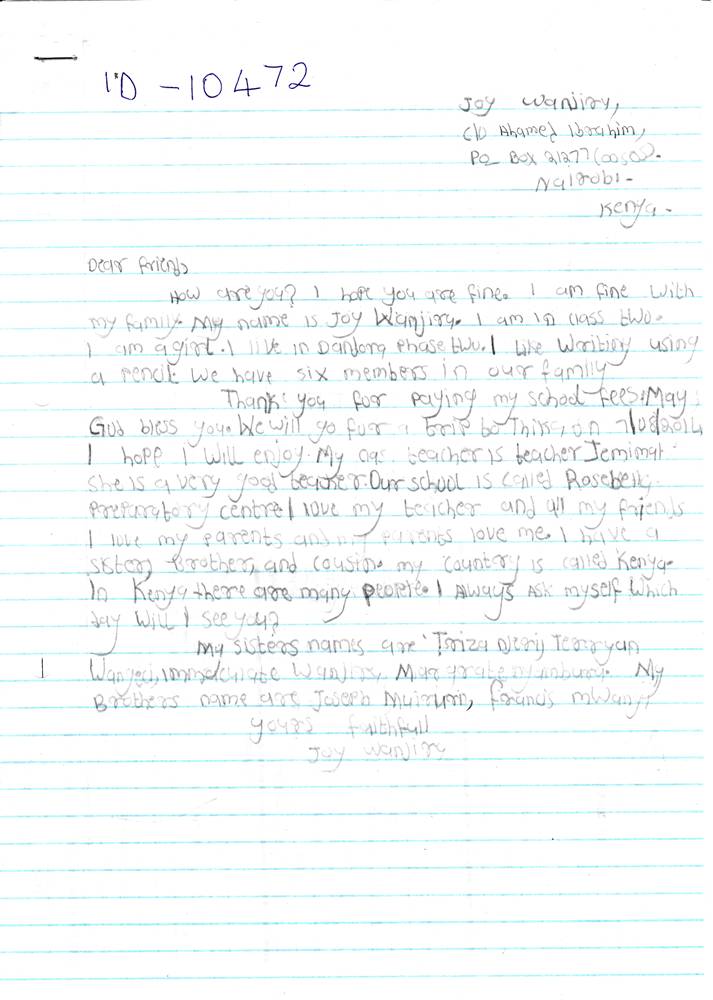 ID - 10472
Joy Wanjiru,
C/O Ahamed Ibrahim,
PO Box 21277 (00505).
Nairobi -
Kenya -
Dear friends
How are you? I hope you are fine. I am fine with
my family. My name is Joy Wanjiru. I am in class two.
I am a girl. I live in Dandora phase two. I like writing using
a pencil we have six members in our family
Thank you for paying my school fees. May
God bless you. We will go for a trip to Thika, on 7/08/2014
I hope I will enjoy. My teacher is teacher Jemimah
she is a very good teacher. Our school is called Rosebell
preparatory centre I love my teacher and all my friends
I love my parents and my parents love me. I have a
sister, brother, and cousin. my country is called Kenya.
In Kenya there are many people. I Always Ask myself which
day will I see you?
My sisters names are Teriza Njeri, Terryan
Wanjeri, immaculate Wanjiru, My
Brothers name are Joseph Muiruri, francis mwanji
yours faithfull
Joy wanjiru